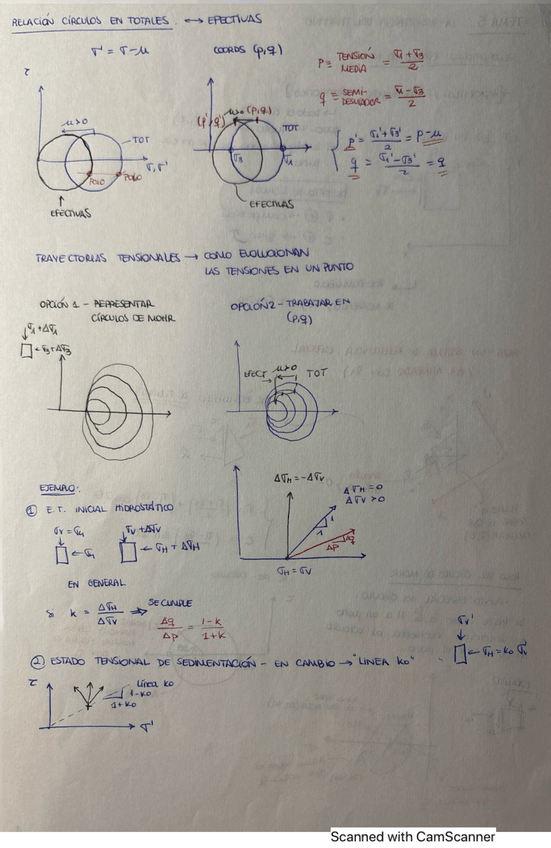 RELACIÓN CÍRCULOS EN TOTALES ↔ EFECTIVAS
σ' = σ - μ
COORDS (p,q)
P = TENSIÓN MEDIA = (σ1 + σ3)/2
q = SEMI-DESVIADOR = (σ1 - σ3)/2
τ
μ>0
TOT
σ, σ'
POLO
POLO
EFECTIVAS
(p',q')
μ>0
(p,q)
TOT
σ3
σ1
EFECTIVAS
p' = (σ1' + σ3')/2 = p - μ
q = (σ1' - σ3')/2 = q
TRAYECTORIAS TENSIONALES → COMO EVOLUCIONAN
LAS TENSIONES EN UN PUNTO
OPCIÓN 1 - REPRESENTAR
CÍRCULOS DE MOHR
OPCIÓN 2 - TRABAJAR EN
(p,q)
σ1 + Δσ1
← σ3 + Δσ3
EFECT
μ>0
TOT
EJEMPLO:
① E.T. INICIAL HIDROSTÁTICO
σV = σH
← σH
σV + ΔσV
← σH + ΔσH
ΔσH = -ΔσV
ΔσH = 0
ΔσV > 0
1
1
Δq
Δp
σH = σV
EN GENERAL
Si k = ΔσH/ΔσV ⇒ SE CUMPLE
Δq/Δp = (1-k)/(1+k)
② ESTADO TENSIONAL DE SEDIMENTACIÓN - EN CAMBIO → "LINEA K0"
σV'
← σH = k0 σV'
τ
Línea K0
1-K0
1+K0
σ'
Scanned with CamScanner